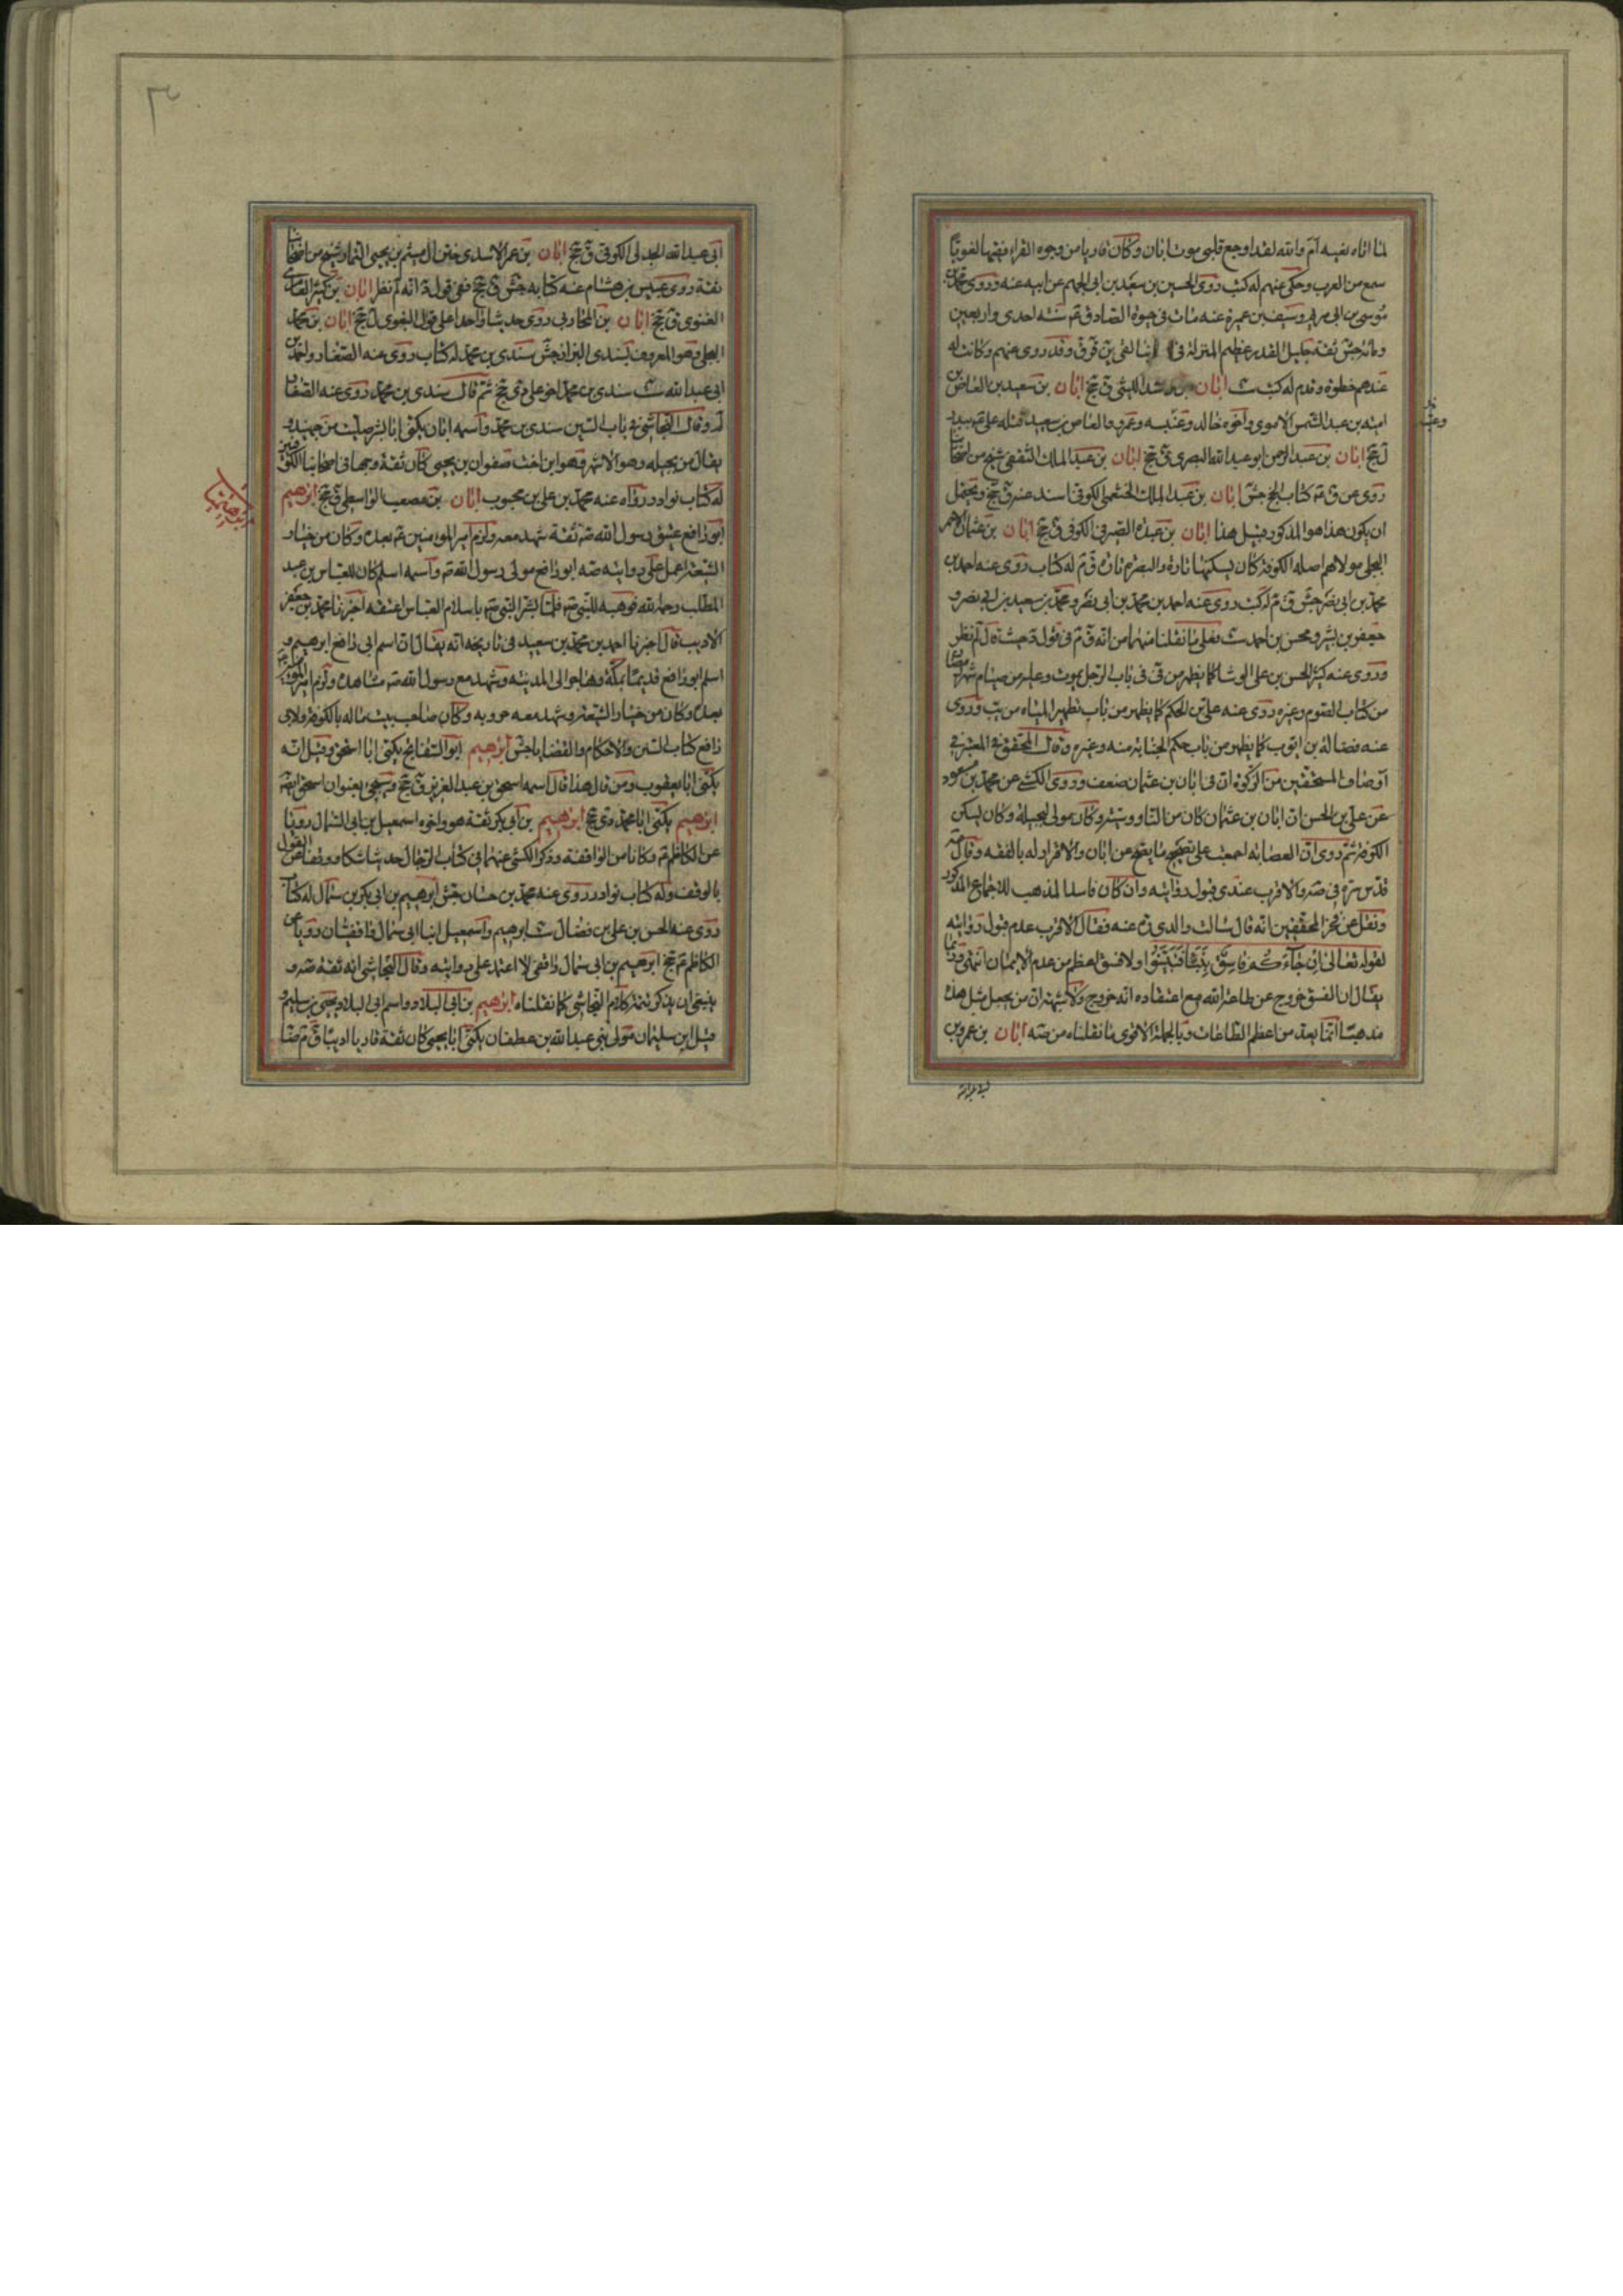 لما اتاه نعيه اَمَ والله لقد اوجع قلبي موت ابان وكان قاريا من وجوه القراء فقيها لغويّا
سمع من العرب وحكى عنهم له كتب روى الحسين بن سعيد بن ابي الجهم عن ابيه عنه وروى محمد بن
موسى بن ابي مريم وسيف بن عميرة عنه مات في حيوة الصادق ع سنه احدى واربعين
ومائه جش ثقة جليل القدر عظيم المنزلة في لقي ين قر ق وقد روى عنهم وكانت له
عندهم خطوة وقدم له كتب ست ابان بن راشد الليثي ق جخ ابان بن سعيد بن العاص بن
اميه بن عبد الشمس الاموي واخوه خالد وعنبسه وعمرو والعاص بن سعيد قتله علي ع ببدر
ل جخ ابان بن عبد الرحمن ابو عبد الله البصري ق جخ ابان بن عبد الملك الثقفي شيخ من اصحابنا
روى عن ق ع كتاب الحج جش ابان بن عبد الملك الخثعمي الكوفي اسند عنه ق جخ ويحتمل
ان يكون هذا هو المذكور قبل هذا ابان بن عبده الصيرفي الكوفي ق جخ ابان بن عثمان الاحمر
البجلي مولاهم اصله الكوفة كان يسكنها تارة والبصرة تارة ق م له كتاب روى عنه احمد بن
محمد بن ابي نصر جش ق م له كتب روى عنه احمد بن محمد بن ابي نصر و محمد بن سعيد بن ابي نصر و
جعفر بن بشير و محسن بن احمد ست فعلى ما نقلنا منهما من انه ق م في قوله لم نظر
وروى عنه كثيرا الحسن بن علي الوشا كما يظهر من في باب الرجل يموت وعليه من صيام شهر رمضان
من كتاب الصوم وغيره روى عنه علي بن الحكم كما يظهر من باب تطهير المياه من يب وروى
عنه فضالة بن ايوب كما يظهر من باب حكم الجنابة منه وغيره وقال المحقق في المعتبر في
اوصاف المستحقين من الزكوة ان في ابان بن عثمان ضعف وروى الكشي عن محمد بن مسعود
عن علي بن الحسن ان ابان بن عثمان كان من الناووسية وكان مولى لبجيلة وكان يسكن
الكوفة ثم روى ان العصابة اجمعت على تصحيح ما يصح عن ابان والاقرار له بالفقه وقال
قدس سره في صه والاقرب عندي قبول روايته وان كان فاسد المذهب للاجماع المذكور
ونقل عن فخر المحققين انه قال سالت والدي ره عنه فقال الاقرب عدم قبول روايته
لقوله تعالى ان جآءكم فاسقٌ بِنَبَأ فَتَبَيَّنُوا ولا فسق اعظم من عدم الايمان انتهى وربما
يقال ان الفسق خروج عن طاعة الله مع اعتقاده انه خروج ولا شبهة ان من يجعل مثل هذه
مذهبا انما يعده من اعظم الطاعات وبالجملة الاقوى ما نقلناه من صه ابان بن عمرو بن
ابي عبد الله
ابي عبد الله الجدلي الكوفي ق جخ ابان بن عمر الاسدي ختن ال ميثم بن يحيى التمار شيخ من اصحابنا
ثقة روى عبيس بن هشام عنه كتابه جش ق جخ ففي قوله انه لم نظر ابان بن كثير العامري
الغنوي ق جخ ابان بن المحاربي روى حديثا واحدا على قول البغوي ل جخ ابان بن محمد
البجلي وهو المعروف بسندي البزاز جش سندي بن محمد له كتاب روى عنه الصفار واحمد بن
ابي عبد الله ست سندي بن محمد اخو علي دي جخ ثم قال سندي بن محمد روى عنه الصفار
لم وقال النجاشي في باب السين سندي بن محمد واسمه ابان يكنى ابا بشر صليب من جهينه و
يقال من بجيله وهو الاشهر وهو ابن اخت صفوان بن يحيى كان ثقة وجها في اصحابنا الكوفيين
له كتاب نوادر رواه عنه محمد بن علي بن محبوب ابان بن مصعب الواسطي ق جخ ابرهيم
ابو رافع عتيق رسول الله صه ثقة شهد معه ولزم امير المؤمنين ع بعده وكان من خيار
الشيعة اعمل على روايته صه ابو رافع مولى رسول الله ص واسمه اسلم كان للعباس بن عبد
المطلب رحمه الله فوهبه للنبي ص فلما بشر النبي ص باسلام العباس اعتقه اخبرنا محمد بن جعفر
الاديب قال اخبرنا احمد بن محمد بن سعيد في تاريخه انه يقال ان اسم ابي رافع ابرهيم و
اسلم ابو رافع قديما بمكة وهاجر الى المدينه وشهد مع رسول الله ص مشاهده ولزم امير المؤمنين ع
بعده وكان من خيار الشيعة وشهد معه حروبه وكان صاحب بيت ماله بالكوفة ولابي
رافع كتاب السنن والاحكام والقضايا جش ابرهيم ابو السفاتج يكنى ابا اسحق وقيل انه
يكنى ابا يعقوب ومن قال هذا قال اسمه اسحق بن عبد العزيز ق جخ وسيجئ بعنوان اسحق ايضا
ابرهيم يكنى ابا محمد دي جخ ابرهيم بن ابي بكر ثقة هو واخوه اسمعيل بن ابي السمال رويا
عن الكاظم ع وكانا من الواقفة وذكر الكشي عنهما في كتاب الرجال حديثا شكا ووقفا عن القول
بالوقف وله كتاب نوادر روى عنه محمد بن حسان جش ابرهيم بن ابي بكر بن سمال له كتاب
روى عنه الحسن بن علي بن فضال ست ابرهيم واسمعيل ابنا ابي سمال واقفيان رويا عن
الكاظم ع جخ ابرهيم بن ابي سمال واقفي لا اعتمد على روايته وقال النجاشي انه ثقة صه و
ينبغي ان يذكر تتمة كلام النجاشي كما نقلناه ابرهيم بن ابي البلاد واسم ابي البلاد يحيى بن سليم و
قيل ابن سليمان مولى بني عبد الله بن غطفان يكنى ابا يحيى كان ثقة قاريا اديبا ق م ضا